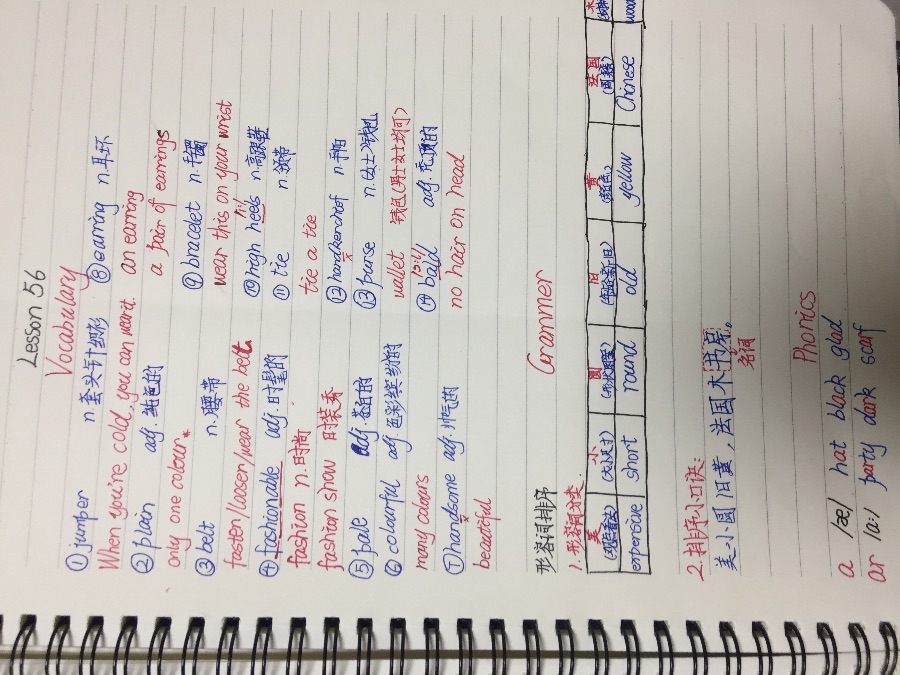 Lesson 56
Vocabulary
① jumper n.套头针织衫
When you're cold, you can wear it
② plain adj.纯色的
only one colour.
③ belt n.腰带
fasten/loosen/wear the belt.
④ fashionable adj.时髦的
fashion n.时尚
fashion show 时装秀
⑤ pale adj.苍白的
⑥ colourful adj 色彩缤纷的
many colours
⑦ handsome adj.帅气的
beautiful
⑧ earring n.耳环
an earring
a pair of earrings
⑨ bracelet n.手镯
wear this on your wrist
⑩ high heels n.高跟鞋
⑪ tie n.领带
tie a tie
⑫ handkerchief n.手帕
⑬ purse n.(女士)钱包
wallet 钱包(男士女士均可)
⑭ bald adj.秃顶的
no hair on head
Grammer
形容词排序
1.形容词分类
美 小 圆 旧 黄 法国 木
(大小尺寸) (颜色) (国籍)
expensive short round old yellow Chinese
2.排序小口诀:
美小圆旧黄,法国木书房。
名词
Phonics
a /æ/ hat black glad
ar /a:/ party dark scarf